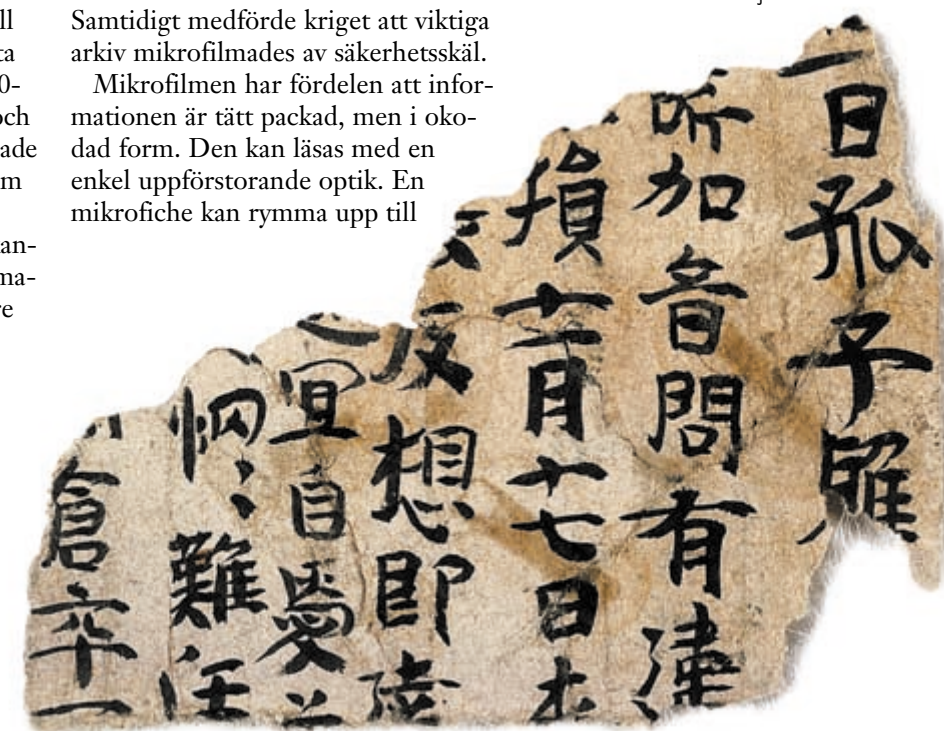 ll
ta
0-
och
ade
m
an-
ma-
re
Samtidigt medförde kriget att viktiga
arkiv mikrofilmades av säkerhetsskäl.
Mikrofilmen har fördelen att infor-
mationen är tätt packad, men i oko-
dad form. Den kan läsas med en
enkel uppförstorande optik. En
mikrofiche kan rymma upp till
日孤子雖
加音問有違
月十七日
想即
宜自愛
惘〻難任
倉卒一